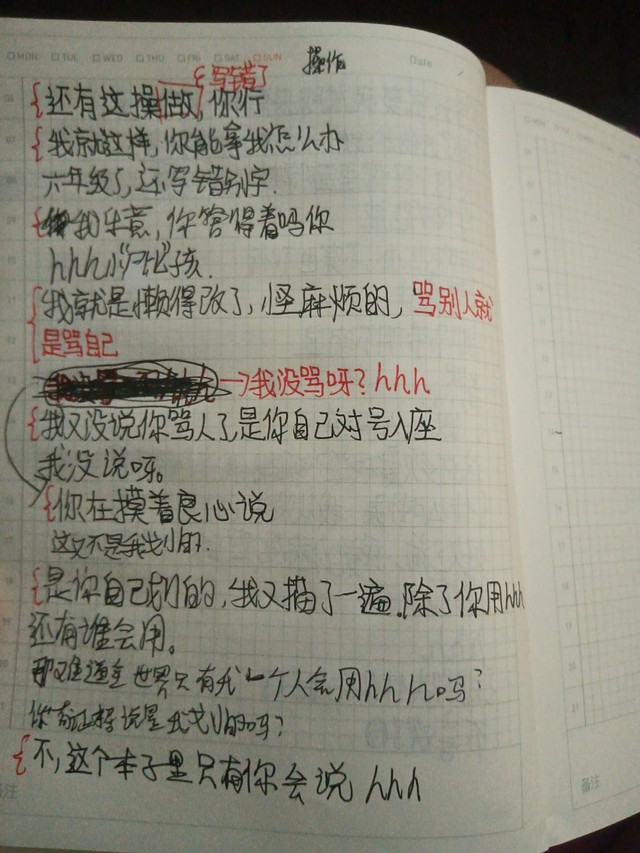 MON TUE WED THU FRI SAT SUN
Date
操作
写错了
还有这操做,你行
我就这样,你能拿我怎么办
六年级了,还写错别字.
我乐意,你管得着吗你
hhh小"P比"孩.
我就是懒得改了,怪麻烦的,骂别人就
是骂自己
→我没骂呀?hhh
我又没说你骂人了,是你自己对号入座
我没说呀。
你在摸着良心说
这又不是我划的.
是你自己划的,我又描了一遍.除了你用hhh
还有谁会用。
那难道全世界只有我一个人会用hhh吗?
你有证据说是我划的吗?
不,这个本子里只有你会说hhh
备注
备注